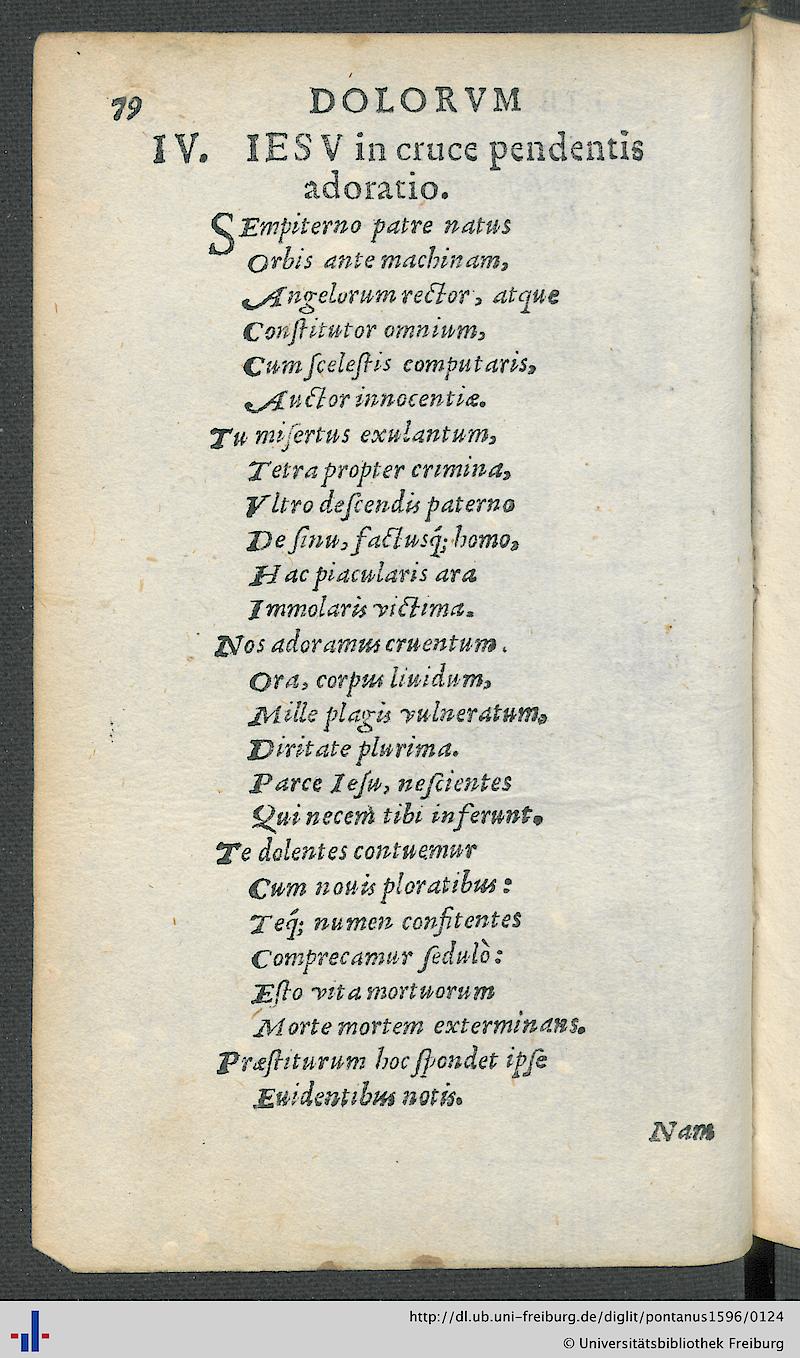 79 DOLORVM
IV. IESV in cruce pendentis
adoratio.
SEmpiterno patre natus
Orbis ante machinam,
Angelorum rector, atque
Conſtitutor omnium,
Cum ſceleſtis computaris,
Auctor innocentiæ.
Tu miſertus exulantum,
Tetra propter crimina,
Vltro deſcendis paterno
De ſinu, factusq́; homo,
Hac piacularis ara
Immolaris victima.
Nos adoramus cruentum.
Ora, corpus liuidum,
Mille plagis vulneratum,
Diritate plurima.
Parce Ieſu, neſcientes
Qui necem̀ tibi inferunt.
Te dolentes contuemur
Cum nouis ploratibus:
Teq́; numen confitentes
Comprecamur ſedulò:
Eſto vita mortuorum
Morte mortem exterminans.
Præſtiturum hoc ſpondet ipſe
Euidentibus notis.
Nam
http://dl.ub.uni-freiburg.de/diglit/pontanus1596/0124
© Universitätsbibliothek Freiburg